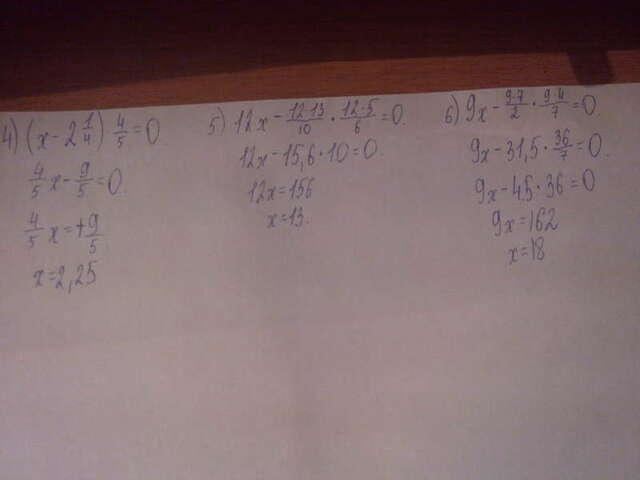 4) (x - 2 1/4) 4/5 = 0
4/5 x - 9/5 = 0.
4/5 x = +9/5
x = 2,25
5) 12x - 12·13/10 · 12·5/6 = 0.
12x - 15,6 · 10 = 0.
12x = 156
x = 13.
6) 9x - 9·7/2 · 9·4/7 = 0
9x - 31,5 · 36/7 = 0.
9x - 4.5 · 36 = 0
9x = 162
x = 18